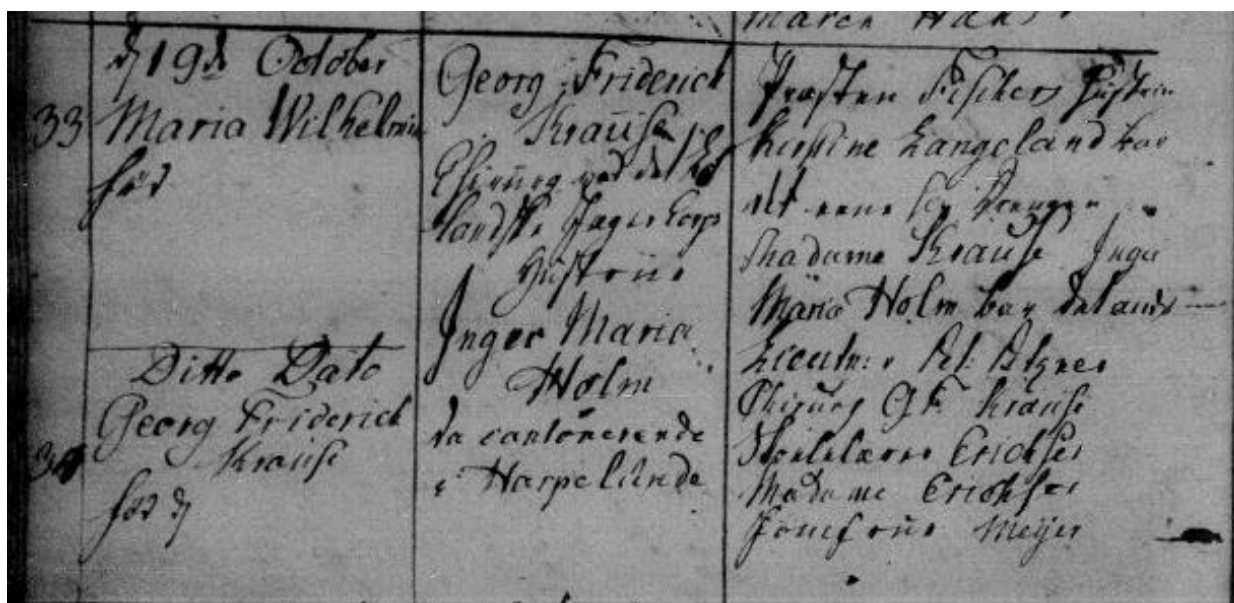 Maren Hans
d 19d October
33 Maria Wilhelmin
fød
Ditto Dato
34 Georg Friderich
Krause
fød d
Georg Friderich
Krause
Chirurg ved det
landske Jæger Corps
Hustrue
Inger Maria
Holm
da cantonerende
i Harpelunde
Præsten Fischers Hustrue
Kirstine Langeland bar
det ene
Madame Krause Inger
Maria Holm bar det andet
Lieutn:
Chirurg G F Krause
Skolelærer Erichsen
Madame Erichsen
Jomfrue Meijer